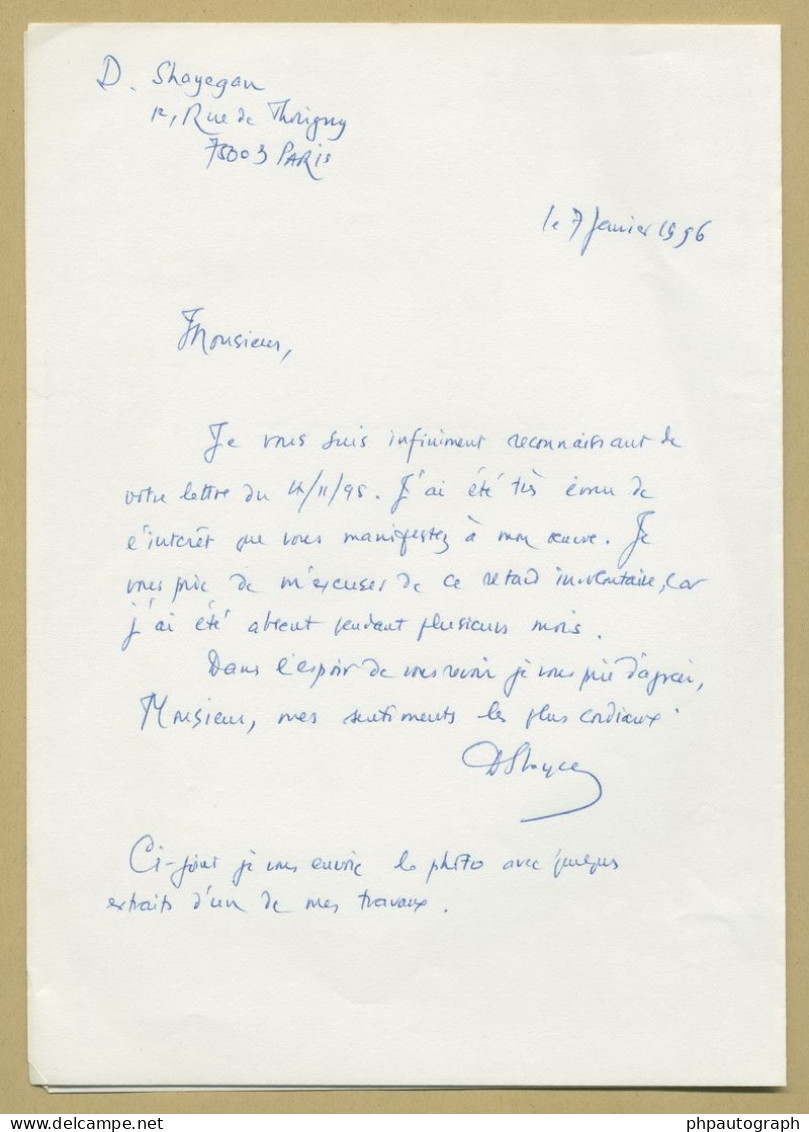 D. Shayegan
12, Rue de Thorigny
75003 PARIS
le 7 Janvier 1996
Monsieur,
Je vous suis infiniment reconnaissant de
votre lettre du /11/95. J'ai été très ému de
l'intérêt que vous manifestez à mon œuvre. Je
vous prie de m'excuser de ce retard involontaire, car
j'ai été absent pendant plusieurs mois.
Dans l'espoir de vous revoir je vous prie d'agréer,
Monsieur, mes sentiments les plus cordiaux.
DShayegan
Ci-joint je vous envoie la photo avec quelques
extraits d'un de mes travaux.
phpautograph